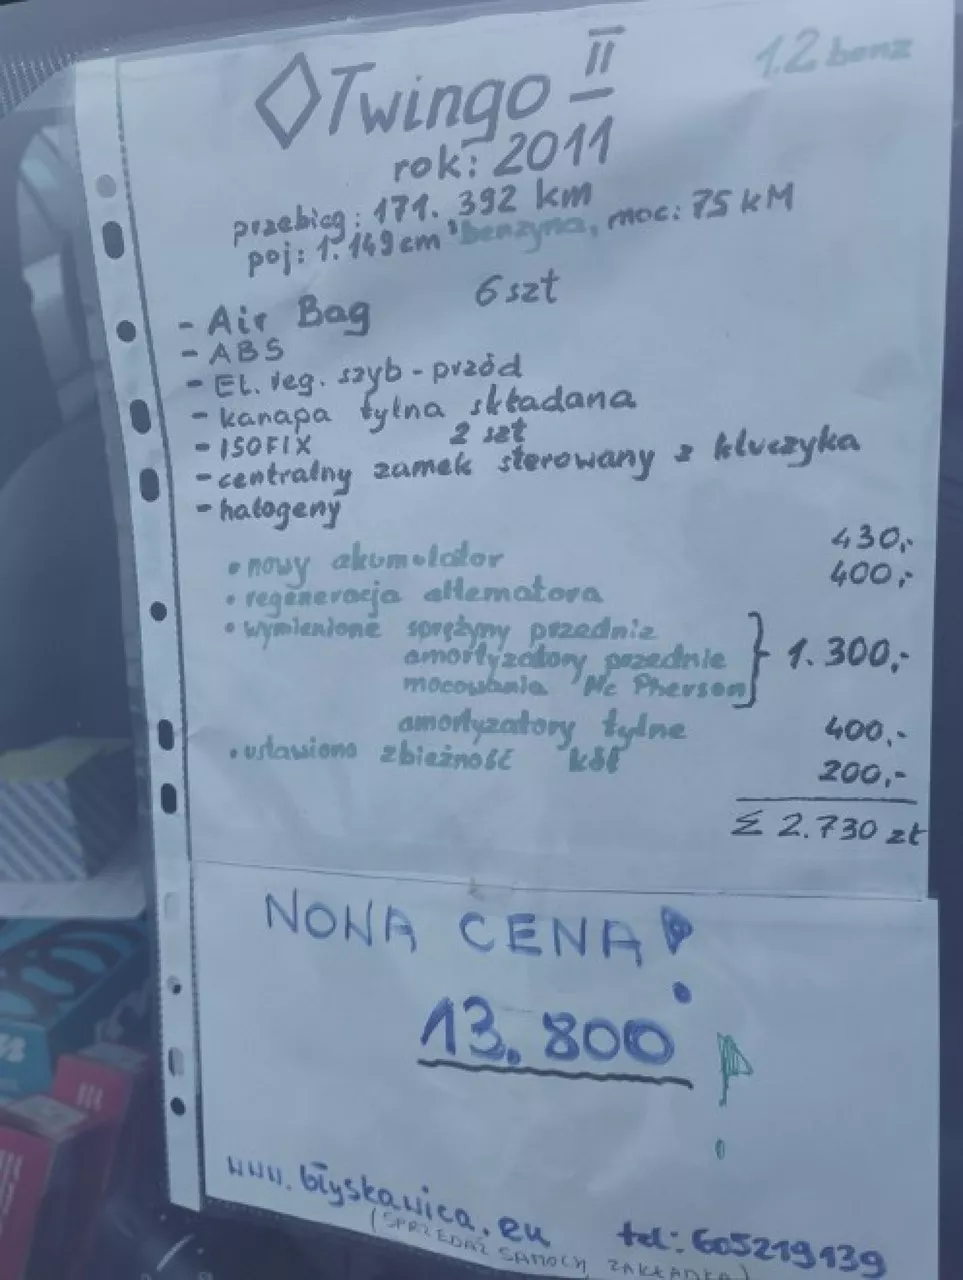 Twingo II 1.2 benz
rok: 2011
przebieg: 171.392 km
poj: 1.149cm³ benzyna, moc: 75 kM
- Air Bag 6 szt
- ABS
- El. reg. szyb - przód
- kanapa tylna składana
- ISOFIX 2 szt
- centralny zamek sterowany z kluczyka
- halogeny
• nowy akumulator 430,-
• regeneracja alternatora 400,-
• wymienione sprężyny przednie
amortyzatory przednie } 1.300,-
mocowania Mc Pherson
amortyzatory tylne 400,-
• ustawiono zbieżność kół 200,-
Σ 2.730 zł
NOWA CENA!
13.800 !
www.błyskawica.eu tel: 605219139
(SPRZEDAŻ SAMOCH, ZAKŁADKA)